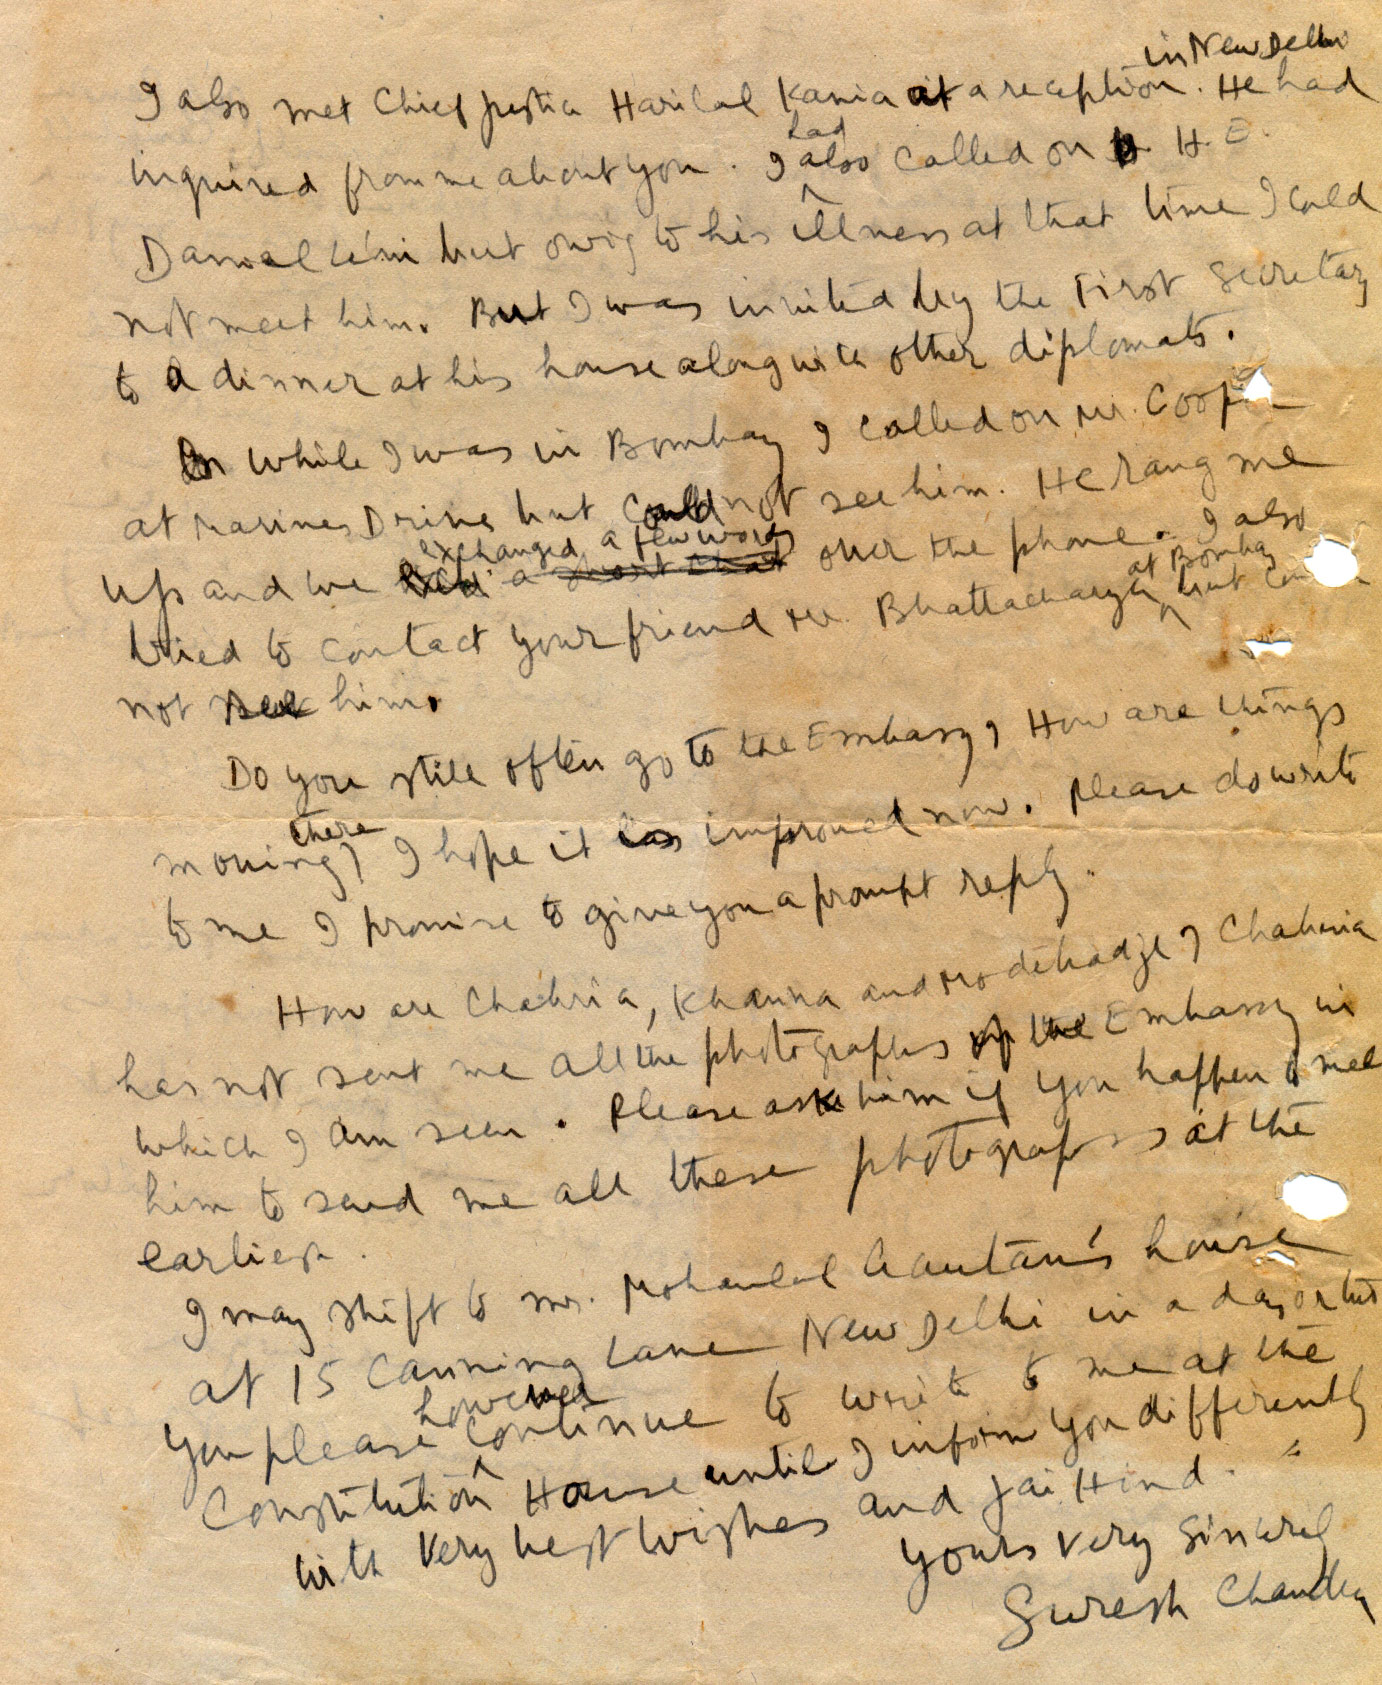 in New Delhi
I also met Chief Justice Harilal Kania at a reception. He had
had
inquired from me about you. I also called on H.E.
but owing to his illness at that time I could
not meet him. But I was invited by the First Secretary
to a dinner at his house along with other diplomats.
While I was in Bombay I called on Mr. Cooper
at Marines Drive but could not see him. He rang me
exchanged a few words
up and we had a short chat over the phone. I also
at Bombay
tried to contact your friend Mr. Bhattacharya but could
not see him.
Do you still often go to the Embassy, How are things
there
moving, I hope it has improved now. Please do write
to me I promise to give you a prompt reply.
How are Chabria, Khanna and Chabria
has not sent me all the photographs of the Embassy in
which I am seen. Please ask him if you happen to meet
him to send me all these photographs at the
earliest.
I may shift to Mr. Mohanlal Gautam's house
at 15 Canning Lane New Delhi in a day or but
however
you please continue to write to me at the
Constitution House until I inform you differently
with very best wishes and Jai Hind.
Yours very sincerely
Suresh Chandra